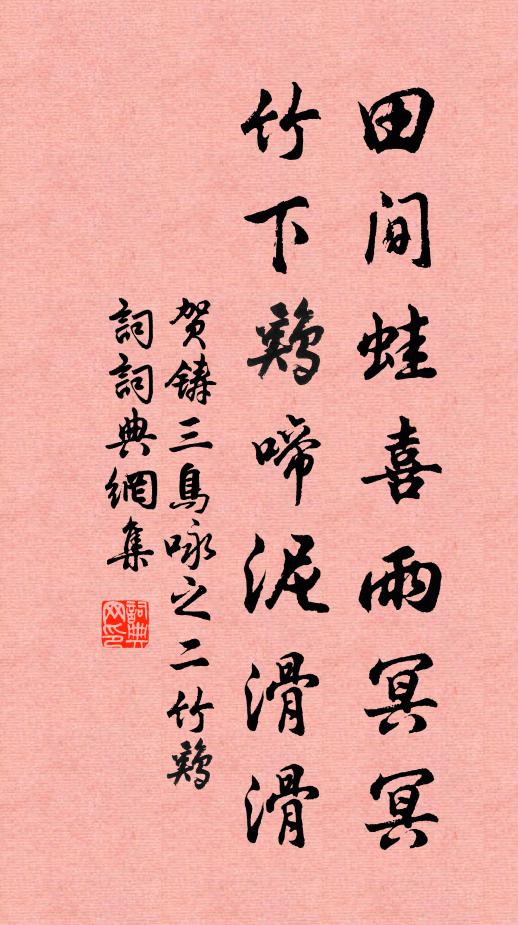 田间蛙喜雨冥冥
竹下鷄啼泥滑滑
贺铸三鳥咏之二竹鷄
詞詞典網集
詞典网印